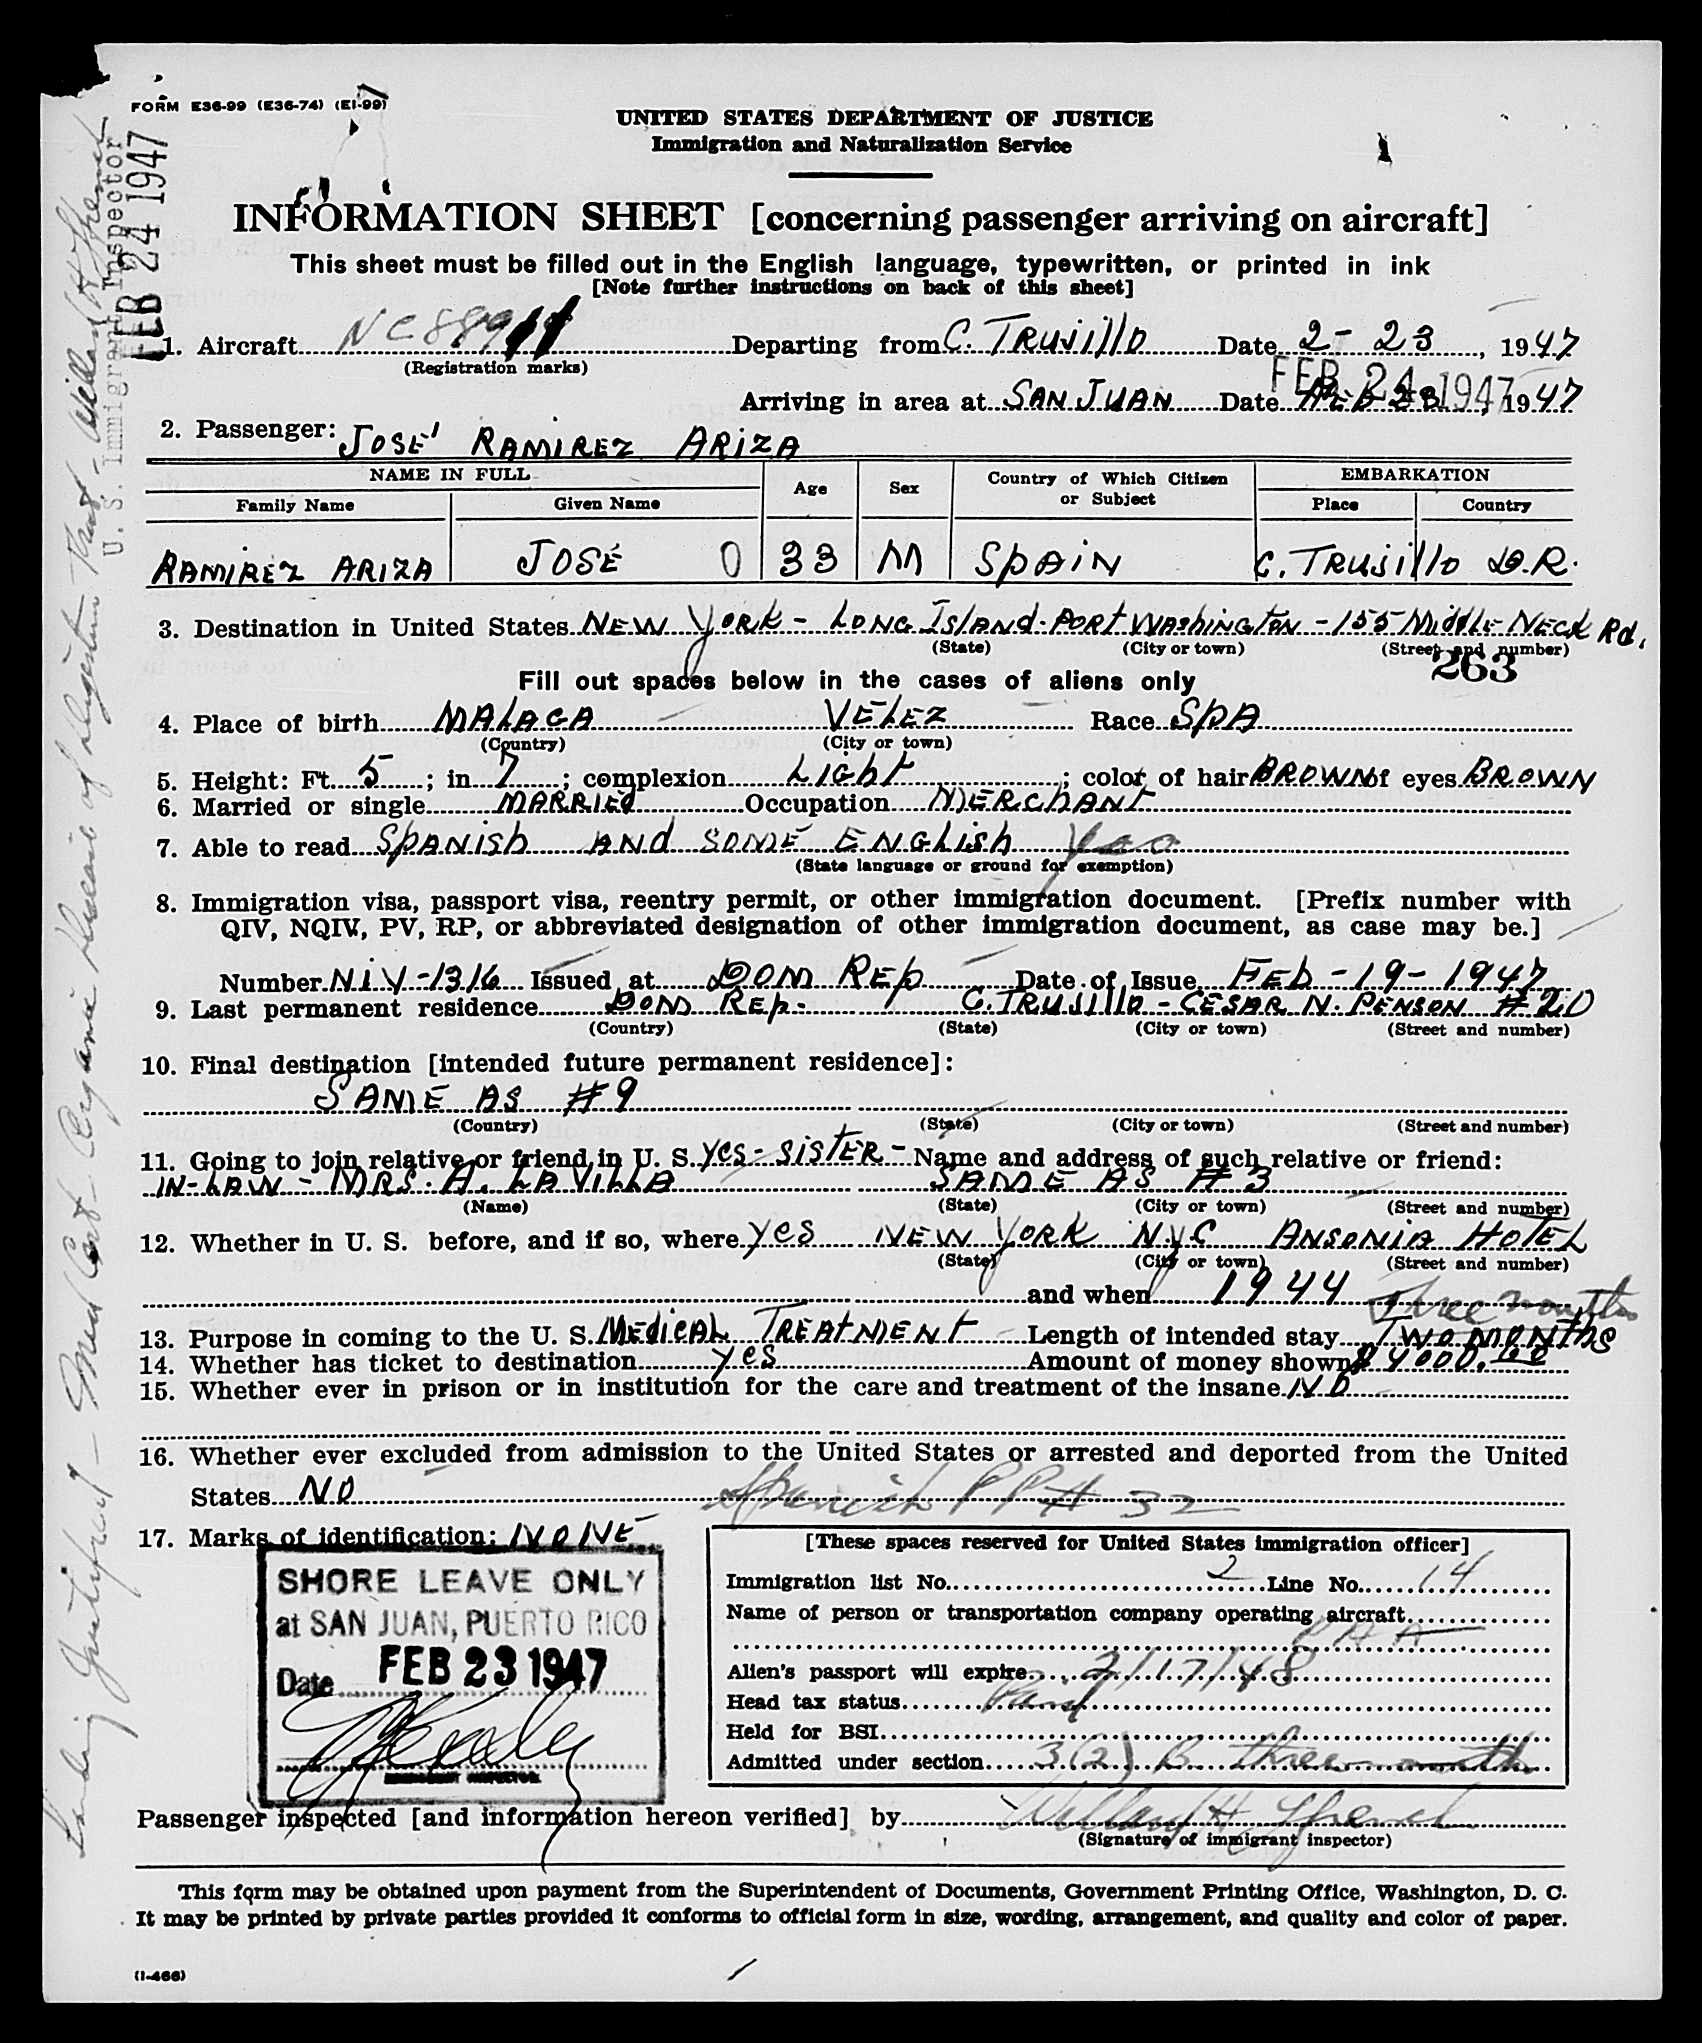 FORM E36-99 (E36-74) (E1-99)
UNITED STATES DEPARTMENT OF JUSTICE
Immigration and Naturalization Service
INFORMATION SHEET [concerning passenger arriving on aircraft]
This sheet must be filled out in the English language, typewritten, or printed in ink
[Note further instructions on back of this sheet]
1. Aircraft NC889 Departing from C. TRUJILLO Date 2-23, 1947
(Registration marks)
FEB 24 1947
Arriving in area at SAN JUAN Date FEB 23, 1947
2. Passenger: JOSÉ RAMIREZ ARIZA
NAME IN FULL Age Sex Country of Which Citizen or Subject EMBARKATION
Family Name Given Name Place Country
RAMIREZ ARIZA JOSÉ 0 33 M SPAIN C. TRUJILLO D.R.
3. Destination in United States NEW YORK - LONG ISLAND - PORT WASHINGTON - 155 MIDDLE NECK Rd.
(State) (City or town) (Street and number)
263
Fill out spaces below in the cases of aliens only
4. Place of birth MALAGA VELEZ Race SPA
(Country) (City or town)
5. Height: Ft. 5; in. 7; complexion LIGHT; color of hair BROWN of eyes BROWN
6. Married or single MARRIED Occupation MERCHANT
7. Able to read SPANISH AND SOME ENGLISH Yes
(State language or ground for exemption)
8. Immigration visa, passport visa, reentry permit, or other immigration document. [Prefix number with
QIV, NQIV, PV, RP, or abbreviated designation of other immigration document, as case may be.]
Number NIV-1316 Issued at DOM REP Date of Issue FEB-19-1947
9. Last permanent residence DOM REP. C. TRUJILLO - CESAR N. PENSON #20
(Country) (State) (City or town) (Street and number)
10. Final destination [intended future permanent residence]:
SAME AS #9
(Country) (State) (City or town) (Street and number)
11. Going to join relative or friend in U. S. YES - SISTER - Name and address of such relative or friend:
IN-LAW - MRS. A. LAVILLA SAME AS #3
(Name) (State) (City or town) (Street and number)
12. Whether in U. S. before, and if so, where YES NEW YORK NYC ANSONIA HOTEL
(State) (City or town) (Street and number)
and when 1944 Three months
13. Purpose in coming to the U. S. MEDICAL TREATMENT Length of intended stay TWO MONTHS
14. Whether has ticket to destination YES Amount of money shown $ 4000.00
15. Whether ever in prison or in institution for the care and treatment of the insane NO
16. Whether ever excluded from admission to the United States or arrested and deported from the United
States NO Spanish PP# 32
17. Marks of identification: NONE
SHORE LEAVE ONLY
at SAN JUAN, PUERTO RICO
Date FEB 23 1947
IMMIGRANT INSPECTOR
[These spaces reserved for United States immigration officer]
Immigration list No. 2 Line No. 14
Name of person or transportation company operating aircraft
PAA
Alien's passport will expire 2/17/48
Head tax status Paid
Held for BSI
Admitted under section 3(2) B three months
Passenger inspected [and information hereon verified] by Willard H. French
(Signature of immigrant inspector)
This form may be obtained upon payment from the Superintendent of Documents, Government Printing Office, Washington, D. C.
It may be printed by private parties provided it conforms to official form in size, wording, arrangement, and quality and color of paper.
(I-466)
Organic disease of digestive tract - Willard H French
U. S. Immigrant Inspector
FEB 24 1947